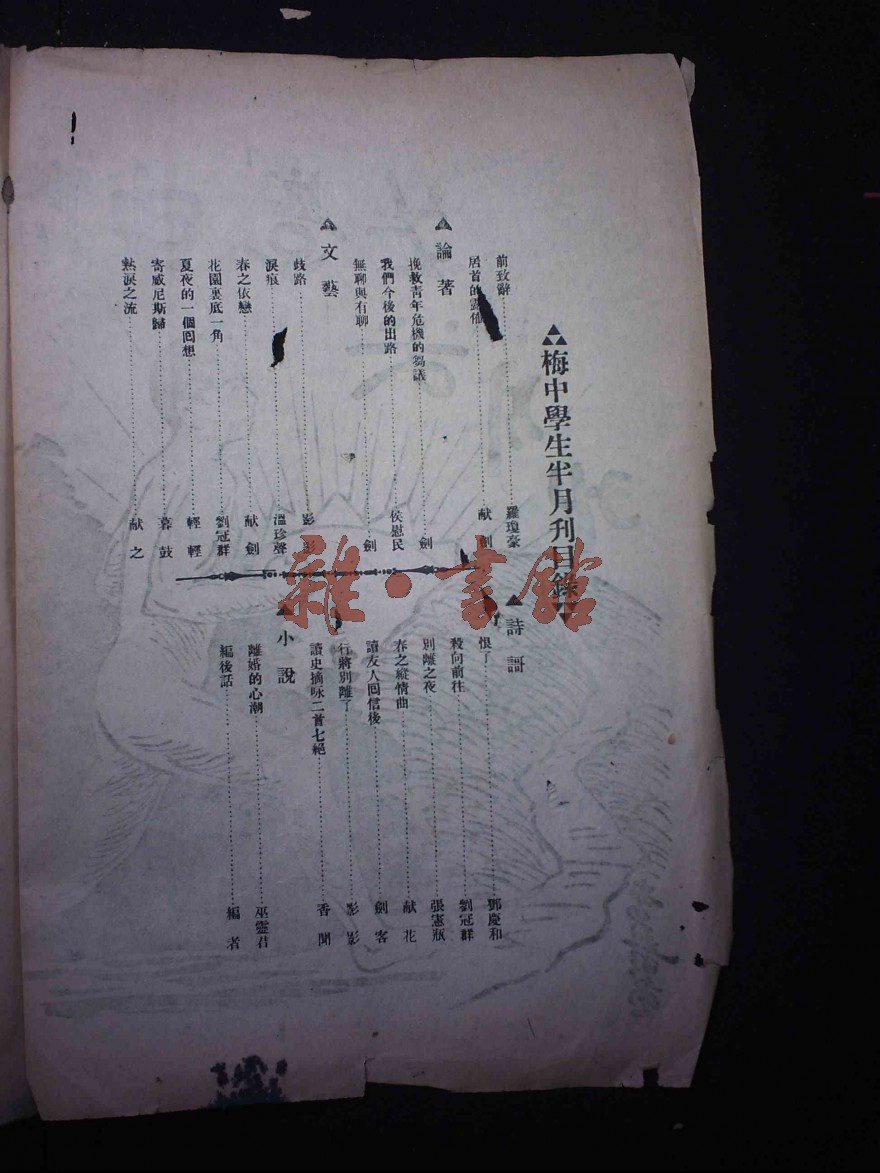 梅中學生半月刊目錄
前致辭 羅瓊豪
居首的 献劍
論著
挽救青年危機的芻議 劍
我們今後的出路 侯慰民
無聊與有聊 劍
文藝
歧路 影影
淚痕 溫珍聲
春之依戀 献劍
花園裏底一角 劉冠群
夏夜的一個囘想 輕輕
寄威尼斯歸 暮鼓
熱淚之流 献之
詩謌
恨了 鄧慶和
殺向前往 劉冠群
別離之夜 張憲瓶
春之縱情曲 献花
讀友人囘信後 劍客
行將別離了 影影
讀史摘咏二首七絕 香聞
小說
離婚的心潮 巫靈君
編後話 編者
雜·書館